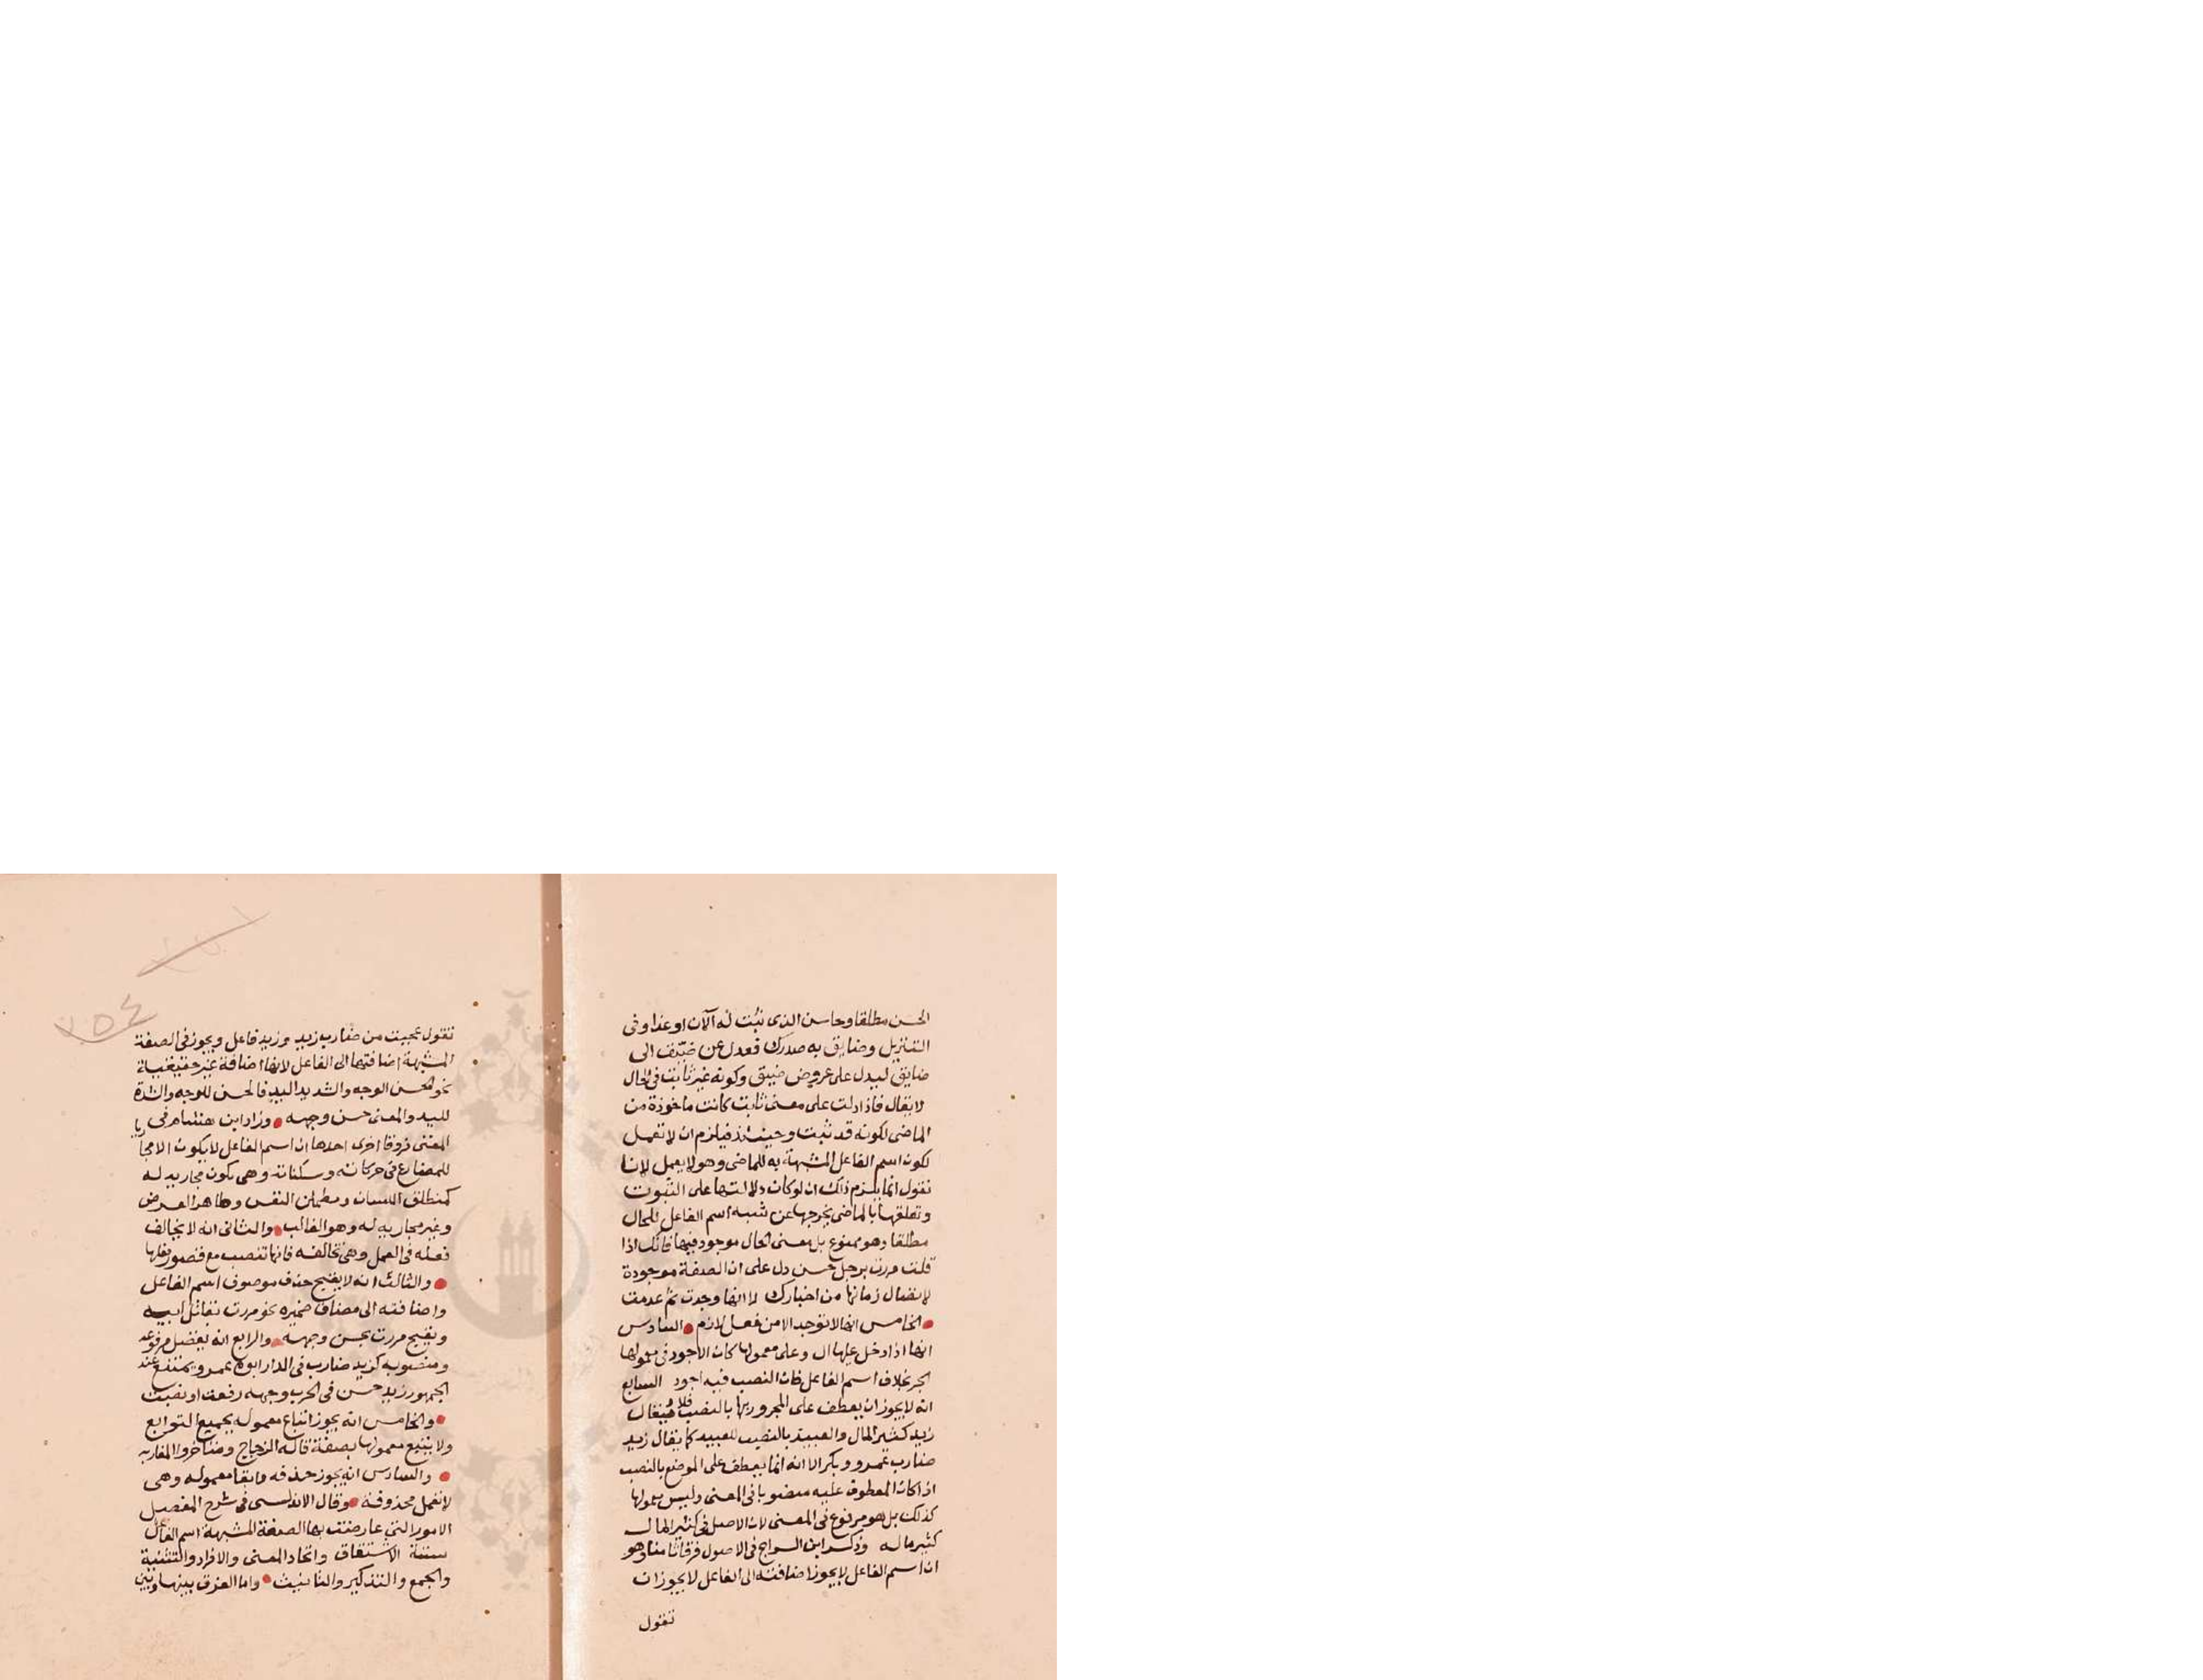 الحسن مطلقا وحاسن الذى ثبت له الآن او غدا وفى
التنزيل وضايق به صدرك فعدل عن ضيّق الى
ضايق ليدل على عروض ضيق وكونه غير ثابت فى الحال
لا يقال فاذا دلت على معنى ثابت كانت ماخوذة من
الماضى لكونه قد ثبت وحينئذ فيلزم ان لا تعمل
لكون اسم الفاعل المشبهة به للماضى وهو لا يعمل لانا
نقول انما يلزم ذلك ان لو كان دلالتها على الثبوت
وتعلقها بالماضى يخرجها عن شبه اسم الفاعل للحال
مطلقا وهو ممنوع بل معنى الحال موجود فيها فانك اذا
قلت مررت برجل حسن دل على ان الصفة موجودة
لاتصال زمانها من اخبارك لا انها وجدت ثم عدمت
الخامس انها لا توجد الا من فعل لازم السادس
انها اذا دخل عليها ال وعلى معمولها كان الاجود فى معمولها
الجر بخلاف اسم الفاعل فان النصب فيه اجود السابع
انه لا يجوز ان يعطف على المجرور بها بالنصب فلا يقال
زيد كثير المال والعبيد بالنصب للعبيد كما يقال زيد
ضارب عمرو وبكرا لا انه انما يعطف على الموضع بالنصب
اذا كان المعطوف عليه منصوبا فى المعنى وليس معمولها
كذلك بل هو مرفوع فى المعنى لان الاصل فى كثير المال
كثير ماله وذكر ابن السراج فى الاصول فرقا ثامنا وهو
ان اسم الفاعل لا يجوز اضافته الى الفاعل لا يجوز ان
تقول
تقول عجبت من ضارب زيد وزيد فاعل ويجوز فى الصفة
المشبهة اضافتها الى الفاعل لانها اضافة غير حقيقية
نحو الحسن الوجه والشديد اليد فالحسن للوجه والشدة
لليد والمعنى حسن وجهه وزاد ابن هشام فى
المغنى فروقا اخرى احدها ان اسم الفاعل لا يكون الا مجاريا
للمضارع فى حركاته وسكناته وهى يكون مجاريه له
كمنطلق اللسان ومطمئن النفس وطاهر العرض
وغير مجاريه له وهو الغالب والثانى انه لا يخالف
فعله فى العمل وهى تخالفه فانها تنصب مع قصور فعلها
والثالث انه لا يقبح حذف موصوف اسم الفاعل
واضافته الى مضاف ضميره نحو مررت بقاتل ابيه
ويقبح مررت بحسن وجهه والرابع انه يفصل مرفوعه
ومنصوبه كزيد ضارب فى الدار ابوه عمرو ويمتنع عند
الجمهور زيد حسن فى الحرب وجهه رفعت او نصبت
والخامس انه يجوز اتباع معموله بجميع التوابع
ولا يتبع معمولها بصفة قاله الزجاج ومتاخروا المغاربه
والسادس انه يجوز حذفه وابقا معموله وهى
لا تعمل محذوفة وقال الاندلسى فى شرح المفصل
الامور التى عارضت بها الصفة المشبهة اسم الفاعل
ستة الاشتقاق واتحاد المعنى والافراد والتثنية
والجمع والتذكير والتانيث واما الفرق بينها وبين